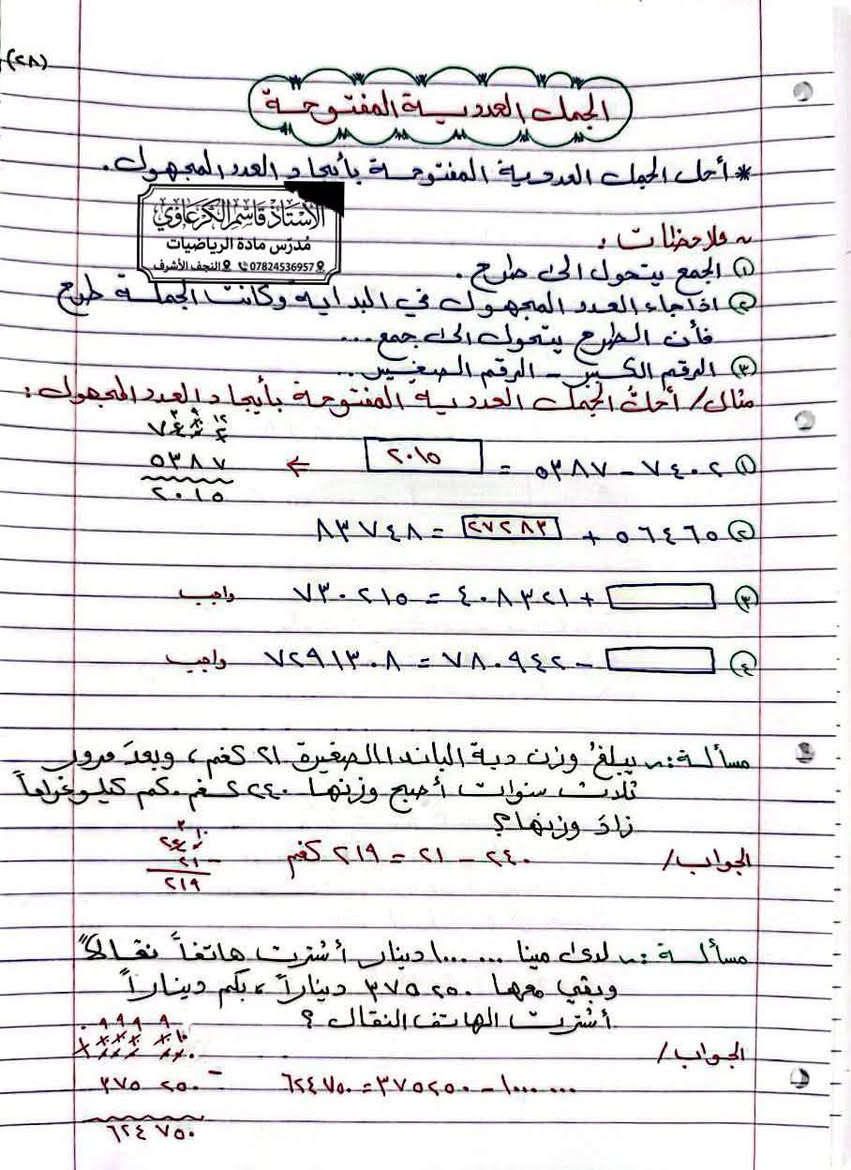 (٢٨)
الجمل العددية المفتوحة
* أحل الجمل العددية المفتوحة بأيجاد العدد المجهول.
الأستاذ قاسم الكرعاوي
مُدرّس مادة الرياضيات
07824536957 النجف الأشرف
ملاحظات :
(١) الجمع يتحول الى طرح .
(٢) اذا جاء العدد المجهول في البداية وكانت الجملة طرح
فأن الطرح يتحول الى جمع...
(٣) الرقم الكبير - الرقم الصغير...
مثال/ أحلُ الجمل العددية المفتوحة بأيجاد العدد المجهول:
(١) ٧٤٠٢ - ٥٣٨٧ = ٢٠١٥ ⇐
٧٤٠٢
٥٣٨٧
٢٠١٥
(٢) ٥٦٤٦٥ + ٢٧٢٨٣ = ٨٣٧٤٨
(٣) + ٤٠٨٣٢١ = ٧٣٠٢١٥ واجب
(٤) - ٧٨٠٩٤٢ = ٧٢٩١٣٠٨ واجب
مسألة :~ يبلغُ وزن دبة الباندا الصغيرة ٢١ كغم، وبعدَ مرور
ثلاث سنوات أصبح وزنها ٢٤٠ كغم. كم كيلوغراماً
زادَ وزنها؟
الجواب/ ٢٤٠ - ٢١ = ٢١٩ كغم
٢٤٠
٢١ -
٢١٩
مسألة :~ لدى مينا ١٠٠٠٠٠٠ دينار أشترت هاتفاً نقالاً
وبقي معها ٣٧٥٢٥٠ ديناراً، بكم ديناراً
أشترت الهاتف النقال ؟
الجواب/
١٠٠٠٠٠٠ - ٣٧٥٢٥٠ = ٦٢٤٧٥٠
٣٧٥ ٢٥٠ -
٦٢٤ ٧٥٠